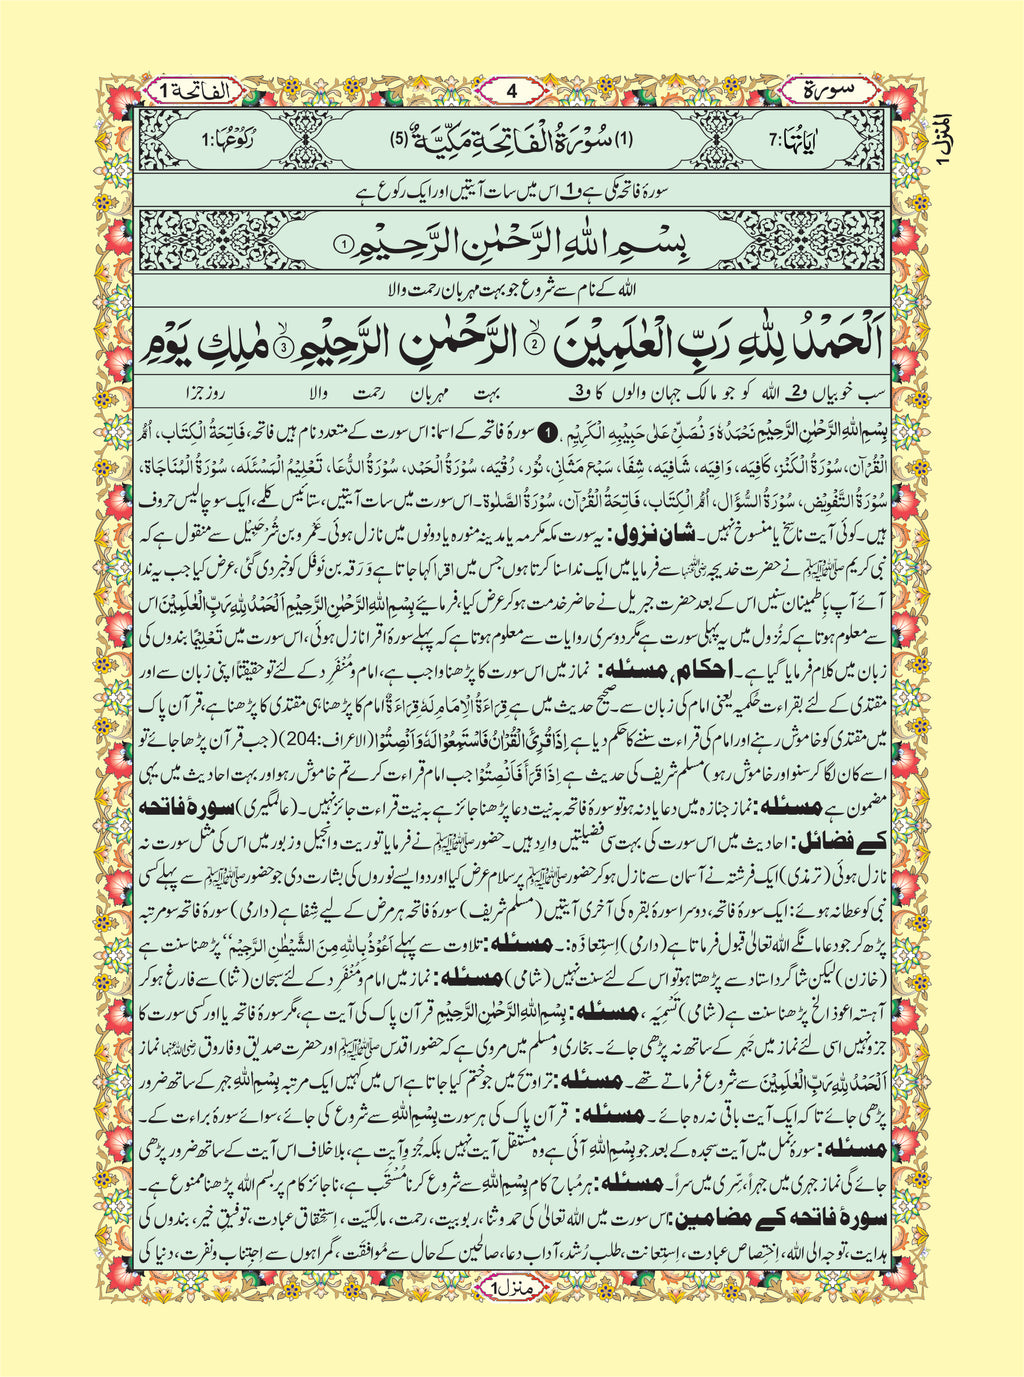 سورۃ
4
الفاتحۃ 1
المنزل 1
اٰیَاتُہَا: 7
(1) سُوْرَۃُ الْفَاتِحَۃِ مَکِّیَّۃٌ (5)
رُکُوْعُہَا: 1
سورۂ فاتحہ مکی ہے ف1 اس میں سات آیتیں اور ایک رکوع ہے
بِسْمِ اللّٰہِ الرَّحْمٰنِ الرَّحِیْمِ ①
اللہ کے نام سے شروع جو بہت مہربان رحمت والا
اَلْحَمْدُ لِلّٰہِ رَبِّ الْعٰلَمِیْنَ ② الرَّحْمٰنِ الرَّحِیْمِ ③ مٰلِکِ یَوْمِ
سب خوبیاں ف2 اللہ کو جو مالک جہان والوں کا ف3 بہت مہربان رحمت والا روز جزا
بِسْمِ اللّٰہِ الرَّحْمٰنِ الرَّحِیْمِ نَحْمَدُہٗ وَ نُصَلِّیْ عَلٰی حَبِیْبِہِ الْکَرِیْمِ۔ 1 سورۂ فاتحہ کے اسما: اس سورت کے متعدد نام ہیں فاتحہ، فَاتِحَۃُ الْکِتَاب، اُمُّ
الْقُرْاٰن، سُوْرَۃُ الْکَنْز، کَافِیَہ، وَافِیَہ، شَافِیَہ، شِفَا، سَبْع مَثَانِی، نُوْر، رُقْیَہ، سُوْرَۃُ الْحَمْد، سُوْرَۃُ الدُّعَا، تَعْلِیْمُ الْمَسْئَلَہ، سُوْرَۃُ الْمُنَاجَاۃ،
سُوْرَۃُ التَّفْوِیْض، سُوْرَۃُ السُّؤَال، اُمُّ الْکِتَاب، فَاتِحَۃُ الْقُرْاٰن، سُوْرَۃُ الصَّلٰوۃ۔ اس سورت میں سات آیتیں، ستائیس کلمے، ایک سو چالیس حروف
ہیں۔ کوئی آیت ناسخ یا منسوخ نہیں۔ شان نزول: یہ سورت مکہ مکرمہ یا مدینہ منورہ یا دونوں میں نازل ہوئی۔ عَمْرو بن شُرَحْبِیْل سے منقول ہے کہ
نبی کریم ﷺ نے حضرت خدیجہ رضی اللہ عنہا سے فرمایا میں ایک ندا سنا کرتا ہوں جس میں اقرا کہا جاتا ہے وَرَقہ بن نَوفَل کو خبر دی گئی، عرض کیا جب یہ ندا
آئے آپ باِطمینان سنیں اس کے بعد حضرت جبریل نے حاضر خدمت ہو کر عرض کیا، فرمایئے بِسْمِ اللّٰہِ الرَّحْمٰنِ الرَّحِیْمِ اَلْحَمْدُ لِلّٰہِ رَبِّ الْعٰلَمِیْنَ اس
سے معلوم ہوتا ہے کہ نُزول میں یہ پہلی سورت ہے مگر دوسری روایات سے معلوم ہوتا ہے کہ پہلے سورۂ اقرا نازل ہوئی، اس سورت میں تَعْلِیْمًا بندوں کی
زبان میں کلام فرمایا گیا ہے۔ احکام، مسئلہ: نماز میں اس سورت کا پڑھنا واجب ہے، امام و مُنْفَرِد کے لئے تو حقیقتاً اپنی زبان سے اور
مقتدی کے لئے بقراءت حُکمیہ یعنی امام کی زبان سے۔ صحیح حدیث میں ہے قِرَاءَۃُ الْاِمَامِ لَہٗ قِرَاءَۃٌ امام کا پڑھنا ہی مقتدی کا پڑھنا ہے، قرآن پاک
میں مقتدی کو خاموش رہنے اور امام کی قراءت سننے کا حکم دیا ہے اِذَا قُرِئَ الْقُرْاٰنُ فَاسْتَمِعُوْا لَہٗ وَاَنْصِتُوْا (الاعراف: 204) (جب قرآن پڑھا جائے تو
اسے کان لگا کر سنو اور خاموش رہو) مسلم شریف کی حدیث ہے اِذَا قَرَأَ فَاَنْصِتُوْا جب امام قراءت کرے تم خاموش رہو اور بہت احادیث میں یہی
مضمون ہے مسئلہ: نماز جنازہ میں دعا یاد نہ ہو تو سورۂ فاتحہ بہ نیت دعا پڑھنا جائز ہے بہ نیت قراءت جائز نہیں۔ (عالمگیری) سورۂ فاتحہ
کے فضائل: احادیث میں اس سورت کی بہت سی فضیلتیں وارد ہیں۔ حضور ﷺ نے فرمایا توریت و انجیل و زبور میں اس کی مثل سورت نہ
نازل ہوئی (ترمذی) ایک فرشتہ نے آسمان سے نازل ہو کر حضور ﷺ پر سلام عرض کیا اور دو ایسے نوروں کی بشارت دی جو حضور ﷺ سے پہلے کسی
نبی کو عطا نہ ہوئے: ایک سورۂ فاتحہ، دوسرا سورۂ بقرہ کی آخری آیتیں (مسلم شریف) سورۂ فاتحہ ہر مرض کے لیے شِفا ہے (دارمی) سورۂ فاتحہ سو مرتبہ
پڑھ کر جو دعا مانگے اللہ تعالٰی قبول فرماتا ہے (دارمی) اِستِعاذَہ:۔ مسئلہ: تلاوت سے پہلے اَعُوْذُ بِاللّٰہِ مِنَ الشَّیْطٰنِ الرَّجِیْمِ‘‘ پڑھنا سنت ہے
(خازن) لیکن شاگرد استاد سے پڑھتا ہو تو اس کے لئے سنت نہیں (شامی) مسئلہ: نماز میں امام و مُنْفَرِد کے لئے سبحان (ثنا) سے فارغ ہو کر
آہستہ اعوذ الخ پڑھنا سنت ہے (شامی) تَسْمِیَہ، مسئلہ: بِسْمِ اللّٰہِ الرَّحْمٰنِ الرَّحِیْمِ قرآن پاک کی آیت ہے، مگر سورۂ فاتحہ یا اور کسی سورت کا
جزو نہیں اسی لئے نماز میں جَہر کے ساتھ نہ پڑھی جائے۔ بخاری و مسلم میں مروی ہے کہ حضور اقدس ﷺ اور حضرت صدیق و فاروق رضی اللہ عنہما نماز
اَلْحَمْدُ لِلّٰہِ رَبِّ الْعٰلَمِیْنَ سے شروع فرماتے تھے۔ مسئلہ: تراویح میں جو ختم کیا جاتا ہے اس میں کہیں ایک مرتبہ بِسْمِ اللّٰہِ جہر کے ساتھ ضرور
پڑھی جائے تا کہ ایک آیت باقی نہ رہ جائے۔ مسئلہ: قرآن پاک کی ہر سورت بِسْمِ اللّٰہِ سے شروع کی جائے، سوائے سورۂ براءت کے۔
مسئلہ: سورۂ نمل میں آیت سجدہ کے بعد جو بِسْمِ اللّٰہِ آئی ہے وہ مستقل آیت نہیں بلکہ جُزوِ آیت ہے، بلا خلاف اس آیت کے ساتھ ضرور پڑھی
جائے گی نماز جہری میں جہراً، سِرّی میں سراً۔ مسئلہ: ہر مُباح کام بِسْمِ اللّٰہِ سے شروع کرنا مُسْتَحَب ہے، ناجائز کام پر بسم اللہ پڑھنا ممنوع ہے۔
سورۂ فاتحہ کے مضامین: اس سورت میں اللہ تعالٰی کی حمد و ثنا، ربوبیت، رحمت، مالکیّت، اِستِحقاق عبادت، توفیق خیر، بندوں کی
ہدایت، توجہ الی اللہ، اِختِصاص عبادت، اِستِعانت، طلب رُشد، آداب دعا، صالحین کے حال سے مُوافَقَت، گمراہوں سے اِجتِناب و نفرت، دنیا کی
منزل 1